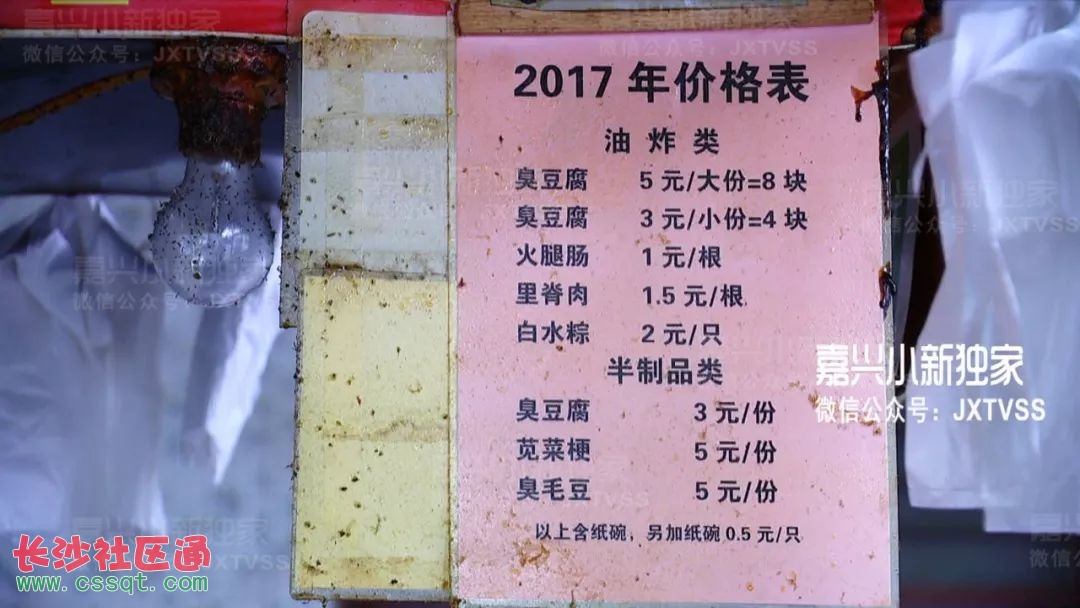 嘉兴小新独家
微信公众号：JXTVSS
2017 年价格表
油 炸 类
臭豆腐 5 元/大份=8 块
臭豆腐 3 元/小份=4 块
火腿肠 1 元/根
里脊肉 1.5 元/根
白水粽 2 元/只
半制品类
臭豆腐 3 元/份
苋菜梗 5 元/份
臭毛豆 5 元/份
以上含纸碗，另加纸碗 0.5 元/只
嘉兴小新独家
微信公众号：JXTVSS
长沙社区通
www.cssqt.com